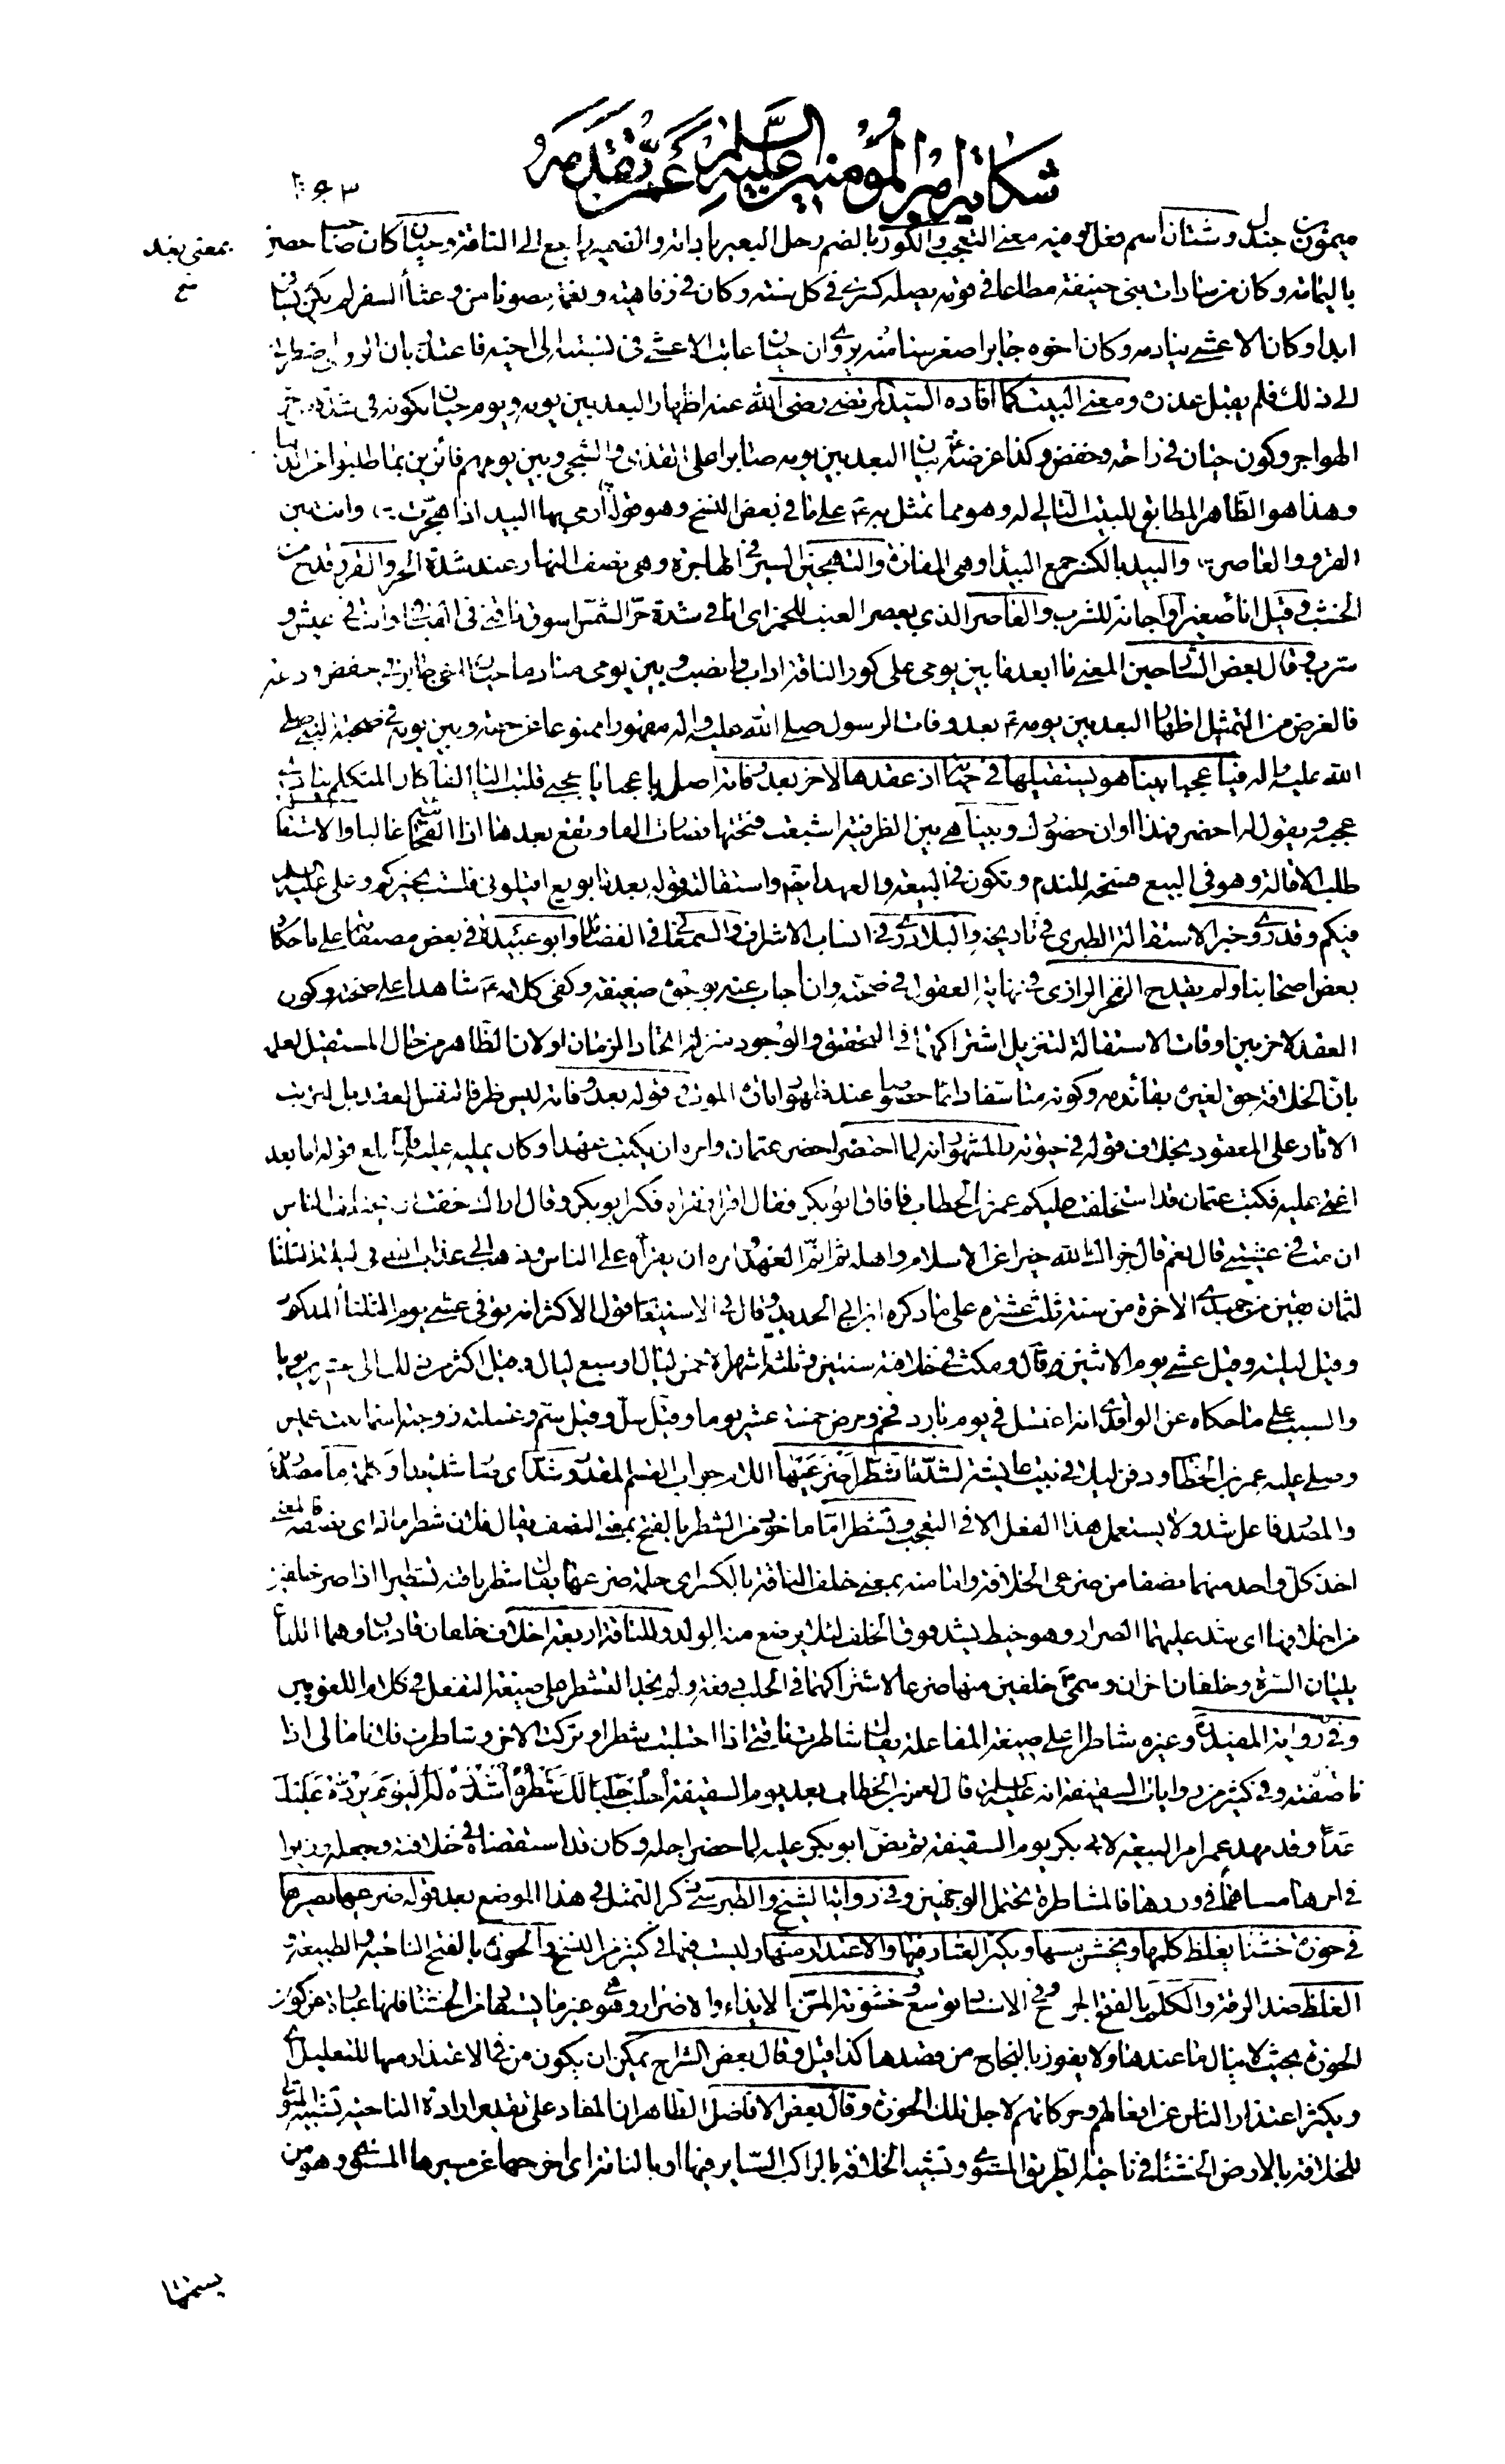 شكاية أمير المؤمنين عليه السلم عمن تقدمه
١٦٣
ميمون بن جندل وشتان اسم فعل وفيه معنى التعجب والكور بالضم رحل البعير بأداته والضمير راجع إلى الناقة وحيان كان صاحب حصن
بمعنى بعد
باليمامة وكان من سادات بني حنيفة مطاعا في قومه يصله كسرى في كل سنة وكان في رفاهية ونعمة مصونا من وعثاء السفر لم يكن يسافر
ابدا وكان الاعشى ينادمه وكان اخوه جابر اصغر سنا منه يروى ان حيان عاتب الاعشى في نسبته إلى اخيه فاعتذر بان الروي اضطره
إلى ذلك فلم يقبل عذره ومعنى البيت كما افاده السيد المرتضى رضي الله عنه اظهار البعد بين يومه ويوم حيان لكونه في شدة من حر
الهواجر وكون حيان في راحة وخفض وكذا غرضه بيان البعد بين يومه صابرا على القذى والشجى وبين يومهم فائزين بما طلبوا من الدنيا
وهذا هو الظاهر المطابق للبيت التالي له وهو مما تمثل به ع على ما في بعض النسخ وهو قوله ارمي بها البيد اذا هجرت وانت بين
القرو والعاصر والبيد بالكسر جمع البيداء وهي المفازة والتهجير السير في الهاجرة وهي نصف النهار عند شدة الحر والقرو قدح من
الخشب وقيل اناء صغير او اجانة للشرب والعاصر الذي يعصر العنب للخمر اي انا في شدة حر الشمس اسوق ناقتي في الفيافي وانت في عيش و
شرب وقال بعض الشارحين المعنى ما ابعد ما بين يومي على كور الناقة اداب وانصب وبين يومي منادما حيان اخي جابر في خفض ودعة
فالغرض من التمثيل اظهار البعد بين يومه ع بعد وفات الرسول صلى الله عليه واله مقهورا ممنوعا عن حقه وبين يومه في صحبة النبي صلى
الله عليه واله فيا عجبا بينا هو يستقيلها في حياته اذ عقدها لاخر بعد وفاته اصل يا عجبا يا عجبي قلبت الياء الفا كان المتكلم ينادي
عجبه ويقول له احضر فهذا اوان حضورك وبينا هي بين الظرفية اشبعت فتحتها فصارت الفا وتقع بعدها اذا الفجائية غالبا والاستقالة
طلب الاقالة وهو في البيع فسخه للندم وتكون في البيعة والعهد ايضا واستقالته قوله بعد ما بويع اقيلوني فلست بخيركم وعلي عليه السلم
فيكم وقد روى خبر الاستقالة الطبري في تاريخه والبلاذري في انساب الاشراف والسمعاني في الفضائل وابو عبيدة في بعض مصنفاته على ما حكاه
بعض اصحابنا ولم يقدح الفخر الرازي في نهاية العقول في صحته وان اجاب عنه بوجوه ضعيفة وكفى كلامه ع شاهدا على صحته وكون
العقد لاخر بين اوقات الاستقالة لتنزيل اشتراكهما في التحقق والوجود منزلة اتحاد الزمان او لان الظاهر من حال المستقيل لعلمه
بان الخلافة حق لغيره بقاء ندمه وكونه متاسفا دائما خصوصا عند ظهور امارة الموت قوله بعد وفاته ليس ظرفا لنفس العقد بل لترتب
الاثار على المعقود بخلاف قوله في حيوته والمشهور انه لما احتضر احضر عثمان وامره ان يكتب عهدا وكان يمليه عليه فلما بلغ قوله اما بعد
اغمي عليه فكتب عثمان قد استخلفت عليكم عمر بن الخطاب فافاق ابو بكر فقال اقرا فقراه فكبر ابو بكر وقال اراك خفت ان يختلف الناس
ان مت في غشيتي قال نعم قال جزاك الله خيرا عن الاسلام واهله ثم اتم العهد وامره ان يقراه على الناس وذهب إلى عذاب الله في ليلة الثلثاء
لثمان بقين من جميدى الاخرة من سنة ثلث عشرة على ما ذكره ابن ابي الحديد وقال في الاستيعاب قول الاكثر انه توفي عشي يوم الثلثاء المذكور
وقيل ليلته وقيل عشي يوم الاثنين قال ومكث في خلافته سنتين وثلثة اشهر الا خمس ليال او سبع ليال وقيل اكثر من ذلك إلى عشرين يوما
والسبب على ما حكاه عن الواقدي انه اغتسل في يوم بارد فحم ومرض خمسة عشر يوما وقيل سل وقيل سم وغسلته زوجته اسماء بنت عميس
وصلى عليه عمر بن الخطاب ودفن ليلا في بيت عايشة لشد ما تشطرا ضرعيها اللام جواب القسم المقدر وشد اي صار شديدا وكلمة ما مصدرية
والمصدر فاعل شد ولا يستعمل هذا الفعل الا في التعجب وتشطرا اما ماخوذ من الشطر بالفتح بمعنى النصف يقال فلان شطر ماله اي نصفه فالمعنى
اخذ كل واحد منهما نصفا من ضرعي الخلافة واما منه بمعنى خلف الناقة بالكسر اي حلمة ضرعها يقال شطر ناقته تشطيرا اذا صر خلفين
من اخلافها اي شد عليهما الصرار وهو خيط يشد فوق الخلف لئلا يرضع منه الولد وللناقة اربعة اخلاف خلفان قادمان وهما اللذان
يليان السرة وخلفان اخران وسمى ع خلفين منها ضرعا لاشتراكهما في الحلب دفعة ولم نجد التشطر على صيغة التفعل في كلام اللغويين
وفي رواية المفيد ره وغيره شاطرا على صيغة المفاعلة يقال شاطرت ناقتي اذا احتلبت شطرا وتركت الاخر وشاطرت فلانا مالي اذا
ناصفته وفي كثير من روايات السقيفة انه عليه السلم قال لعمر بن الخطاب بعد يوم السقيفة احلب حلبا لك شطره اشدده له اليوم يرده عليك
غدا وقد مهد عمر امر البيعة لابي بكر يوم السقيفة ثم نص ابو بكر عليه لما حضر اجله وكان قد استقضاه في خلافته وجعله وزيرا
في امرها مساهما في وزرها فالمشاطرة تحتمل الوجهين وفي رواية الشيخ والطبرسي ذكر التمثل في هذا الموضع بعد قوله ضرعيها فصيرها
في حوزة خشناء يغلظ كلمها ويخشن مسها ويكثر العثار فيها والاعتذار منها وليست فيها في كثير من النسخ والحوزة بالفتح الناحية والطبيعة و
الغلظ ضد الرقة والكلم بالفتح الجرح وفي الاسناد توسع وخشونة المس الايذاء والاضرار وهو غير ما يستفاد من الخشناء فانها عبارة عن كون
الحوزة بحيث لا ينال ما عندها ولا يفوز بالنجاح من قصدها كذا قيل وقال بعض الشراح يمكن ان يكون من في الاعتذار منها للتعليل اي
ويكثر اعتذار الناس عن افعالهم وحركاتهم لاجل تلك الحوزة وقال بعض الافاضل الظاهر ان المفاد على تقدير ارادة الناحية تشبيه المتولي
للخلافة بالارض الخشناء في ناحية الطريق المستوي وتشبيه الخلافة بالراكب الساير فيها او بالناقة اي اخرجها عن مسيرها المستوي وهو من
يستحقها